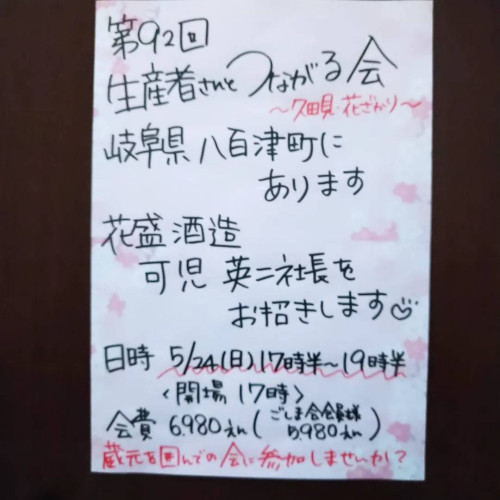 第92回
生産者さんとつながる会
〜久田見・花ざかり〜
岐阜県八百津町に
あります
花盛酒造
可児 英二社長を
お招きします
日時 5/24(日)17時半〜19時半
<開場 17時>
会費 6,980えん(ごしま会会員様 5,980えん)
蔵元を囲んでの会に参加しませんか?